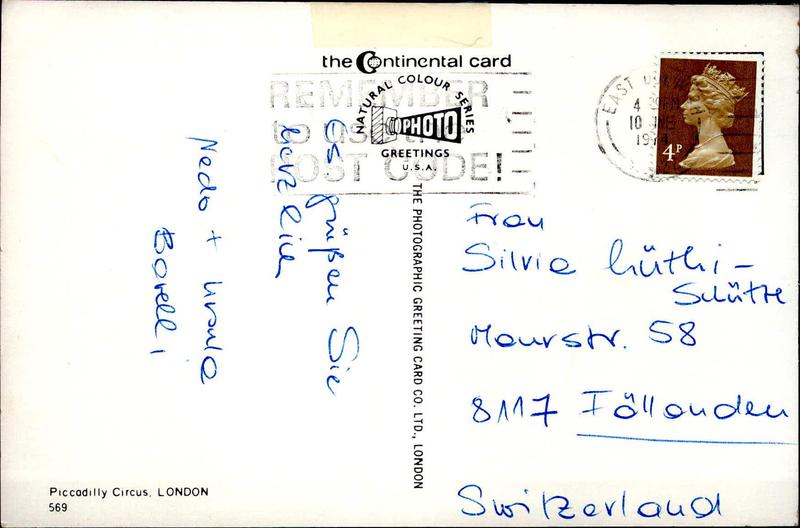 the Continental card
REMEMBER
to use the
POST CODE!
NATURAL COLOUR SERIES
PHOTO
GREETINGS
U.S.A.
EAST
4
10 JNE
197
4P
Es grüßen Sie
herzlich
Nedo + Ursula
Borelli
THE PHOTOGRAPHIC GREETING CARD CO. LTD., LONDON
Frau
Silvia Lüthi-
Schütte
Maurstr. 58
8117 Fällanden
Switzerland
Piccadilly Circus, LONDON
569